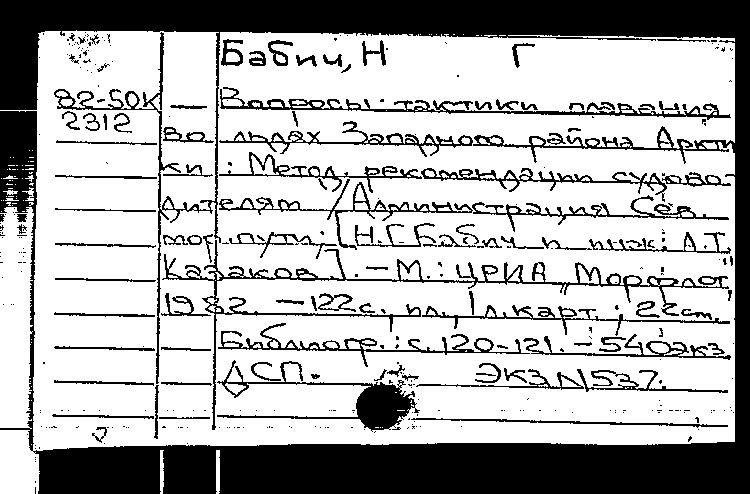 Бабич, Н Г
82-50К — Вопросы тактики плавания
2312 во льдах Западного района Аркти
ки : Метод. рекомендации судово-
дителям / Администрация Сев.
мор. пути; [Н.Г. Бабич и инж. Л.Т.
Казаков]. — М.: ЦРИА „Морфлот",
1982. — 122с., ил., 1 л. карт.; 22см.
Библиогр.: с. 120-121. — 540экз.
ДСП. ЭКЗ N537.